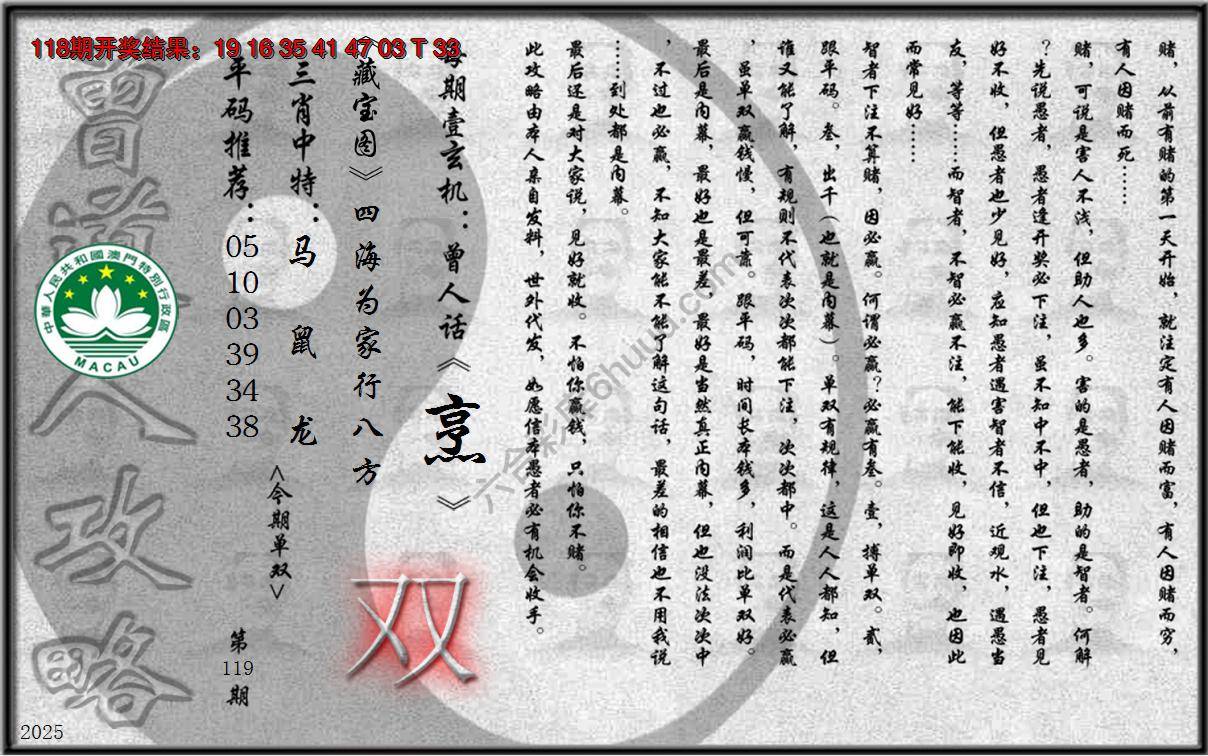 118期开奖结果：19 16 35 41 47 03 T 33
赌，从前有赌的第一天开始，就注定有人因赌而富，有人因赌而穷，
有人因赌而死……
赌，可说是害人不浅，但助人也多。害的是愚者，助的是智者。何解
？先说愚者，愚者逢开奖必下注，虽不知中不中，但也下注，愚者见
好不收，但愚者也少见好，应知愚者遇害智者不信，近观水，遇愚当
友，等等……而智者，不智必赢不注，能下能收，见好即收，也因此
而常见好……
智者下注不算赌，因必赢。何谓必赢？必赢有叁。壹，搏单双。贰，
跟平码。叁，出千（也就是内幕）。单双有规律，这是人人都知，但
谁又能了解，有规则不代表次次都能下注，次次都中。而是代表必赢
，虽单双赢钱慢，但可靠。跟平码，时间长本钱多，利润比单双好。
最后是内幕，最好也是最差，最好是当然真正内幕，但也没法次次中
，不过也必赢，不知大家能不能了解这句话，最差的相信也不用我说
……到处都是内幕。
最后还是对大家说，见好就收。不怕你赢钱，只怕你不赌。
此攻略由本人亲自发料，世外代发，如愿信本愚者必有机会收手。
每期壹玄机：曾人话《烹》
《藏宝图》四海为家行八方
三肖中特：马 鼠 龙
平码推荐：05 10 03 39 34 38
<今期单双>
双
第119期
曾道人攻略
中華人民共和國澳門特別行政區
MACAU
六合彩库6huuu.com
2025